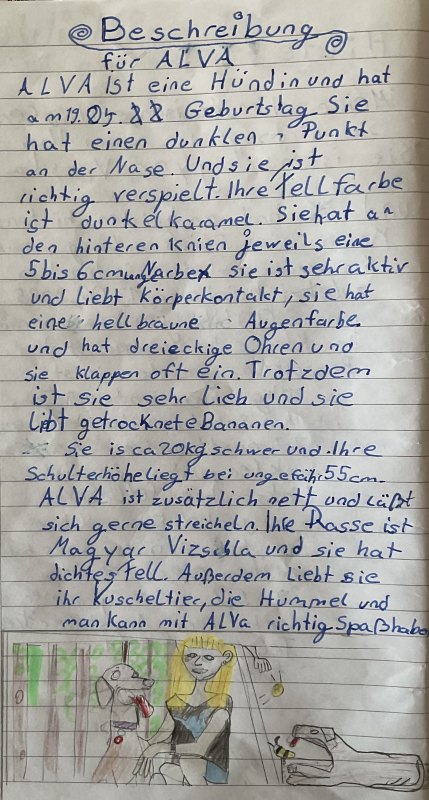 Beschreibung
für ALVA
ALVA Ist eine Hündin und hat
am 19.04. 22 Geburtstag Sie
hat einen dunklen Punkt
an der Nase. Und sie ist
richtig verspielt. Ihre Fellfarbe
ist dunkelkaramel. Sie hat an
den hinteren Knien jeweils eine
5 bis 6 cm Narbe sie ist sehr aktiv
und liebt Körperkontakt, sie hat
eine hellbraune Augenfarbe
und hat dreieckige Ohren und
sie klappen oft ein. Trotzdem
ist sie sehr Lieb und sie
liebt getrocknete Bananen.
Sie is ca 20kg schwer und. Ihre
Schulterhöhe liegt bei ungefähr 55cm.
ALVA ist zusätzlich nett und Läßt
sich gerne streicheln. Ihre Rasse ist
Magyar Vizschla und sie hat
dichtes Fell. Außerdem Liebt sie
ihr Kuscheltier, die Hummel und
man kann mit ALVa richtig Spaß habe